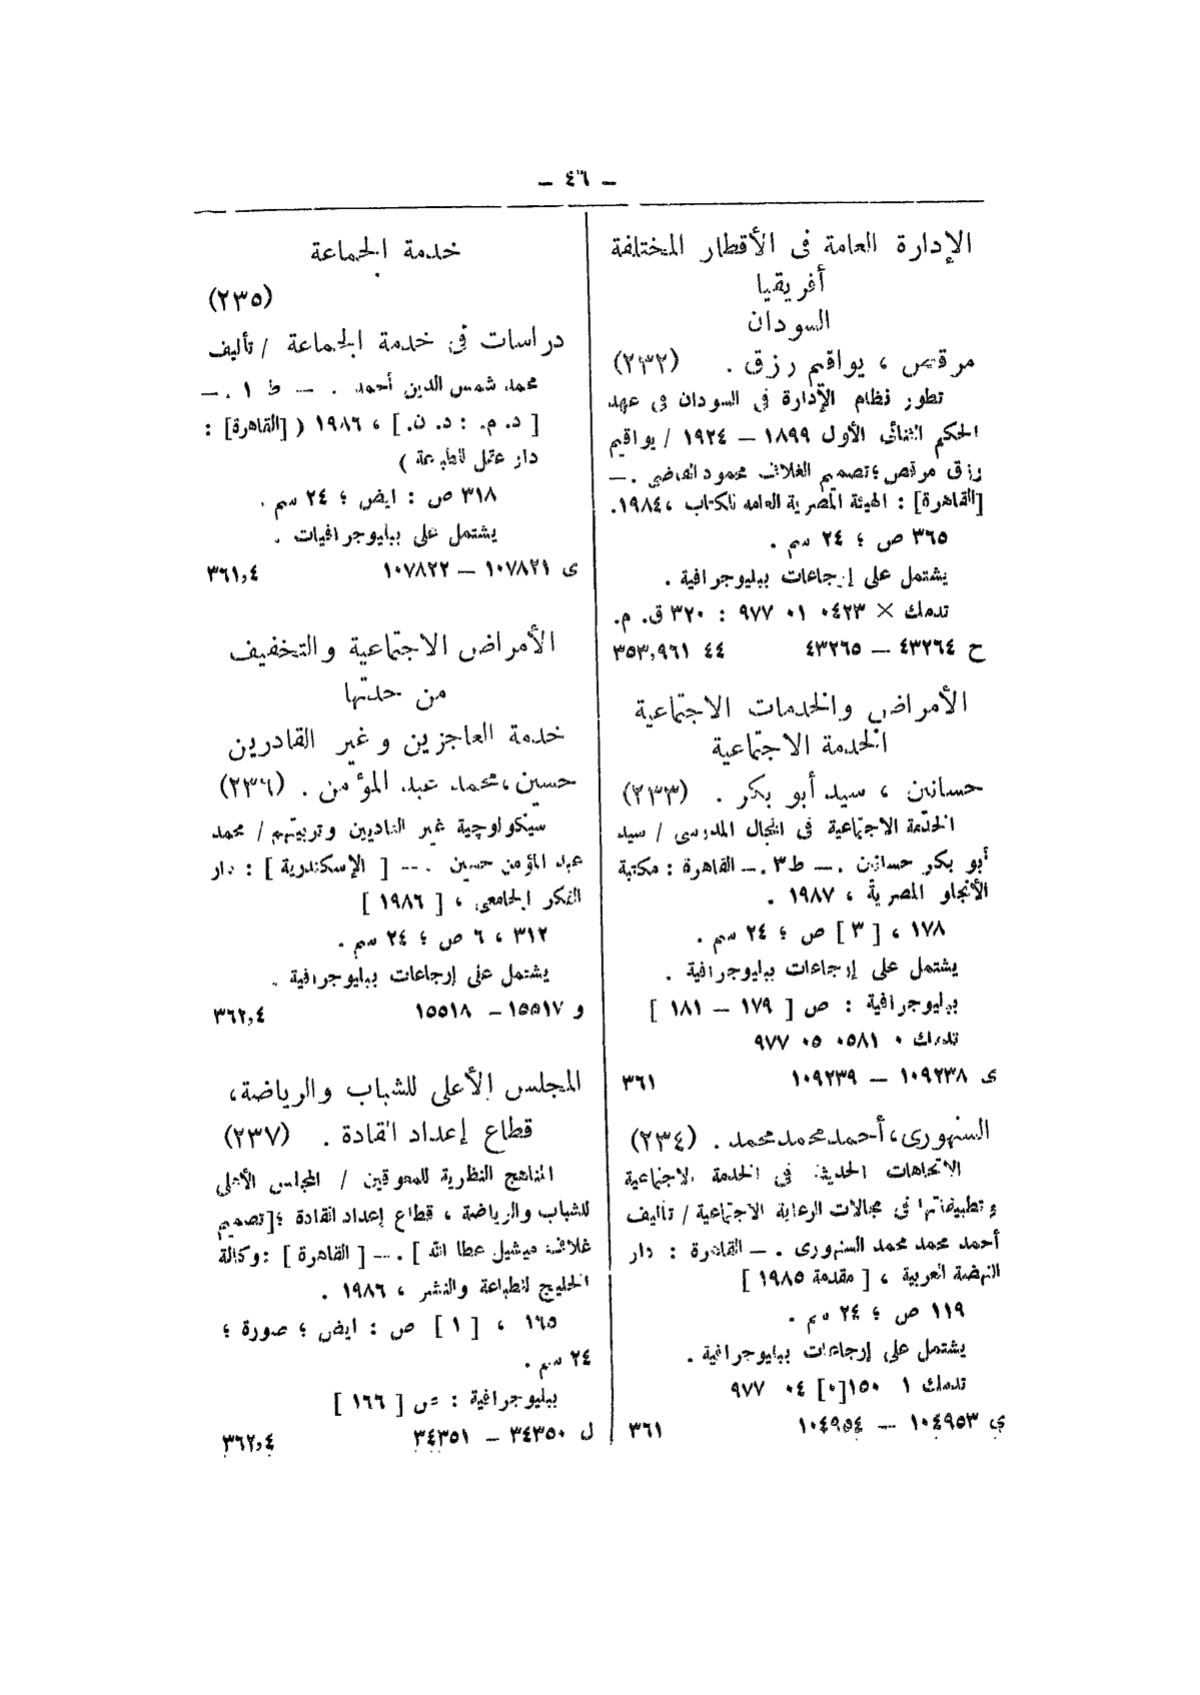 – ٤٦ –
الإدارة العامة فى الأقطار المختلفة
أفريقيا
السودان
مرقص ، يواقيم رزق . (٢٣٢)
تطور نظام الإدارة فى السودان فى عهد
الحكم الثنائى الأول ١٨٩٩ – ١٩٢٤ / يواقيم
رزق مرقص ؛ تصميم الغلاف محمود القاضى . –
[القاهرة] : الهيئة المصرية العامة للكتاب ، ١٩٨٤.
٣٦٥ ص ؛ ٢٤ سم .
يشتمل على إرجاعات ببليوجرافية .
تدمك × ٠٤٢٣ ٠١ ٩٧٧ : ٣٢٠ ق. م.
ح ٤٣٢٦٤ – ٤٣٢٦٥ ٤٤ ٣٥٣,٩٦١
الأمراض والخدمات الاجتماعية
الخدمة الاجتماعية
حسانين ، سيد أبو بكر . (٢٣٣)
الخدمة الاجتماعية فى المجال المدرسى / سيد
أبو بكر حسانين . – ط٣ . – القاهرة : مكتبة
الأنجلو المصرية ، ١٩٨٧ .
١٧٨ ، [ ٣ ] ص ؛ ٢٤ سم .
يشتمل على إرجاعات ببليوجرافية .
ببليوجرافية : ص [ ١٧٩ – ١٨١ ]
تدمك ٠ ٠٥٨١ ٠٥ ٩٧٧
ى ١٠٩٢٣٨ – ١٠٩٢٣٩ ٣٦١
السنهورى، أحمد محمد محمد . (٢٣٤)
الاتجاهات الحديثة فى الخدمة الاجتماعية
وتطبيقاتها فى مجالات الرعاية الاجتماعية / تأليف
أحمد محمد محمد السنهورى . – القاهرة : دار
النهضة العربية ، [ مقدمة ١٩٨٥ ]
١١٩ ص ؛ ٢٤ سم .
يشتمل على إرجاعات ببليوجرافية .
تدمك ١ ١٥٠[٠] ٠٤ ٩٧٧
ى ١٠٤٩٥٣ – ١٠٤٩٥٤ ٣٦١
خدمة الجماعة
(٢٣٥)
دراسات فى خدمة الجماعة / تأليف
محمد شمس الدين أحمد . – ط ١ . –
[ د. م. : د. ن. ] ، ١٩٨٦ ( [القاهرة] :
دار عمل للطباعة )
٣١٨ ص : ايض ؛ ٢٤ سم .
يشتمل على ببليوجرافيات .
ى ١٠٧٨٢١ – ١٠٧٨٢٢ ٣٦١,٤
الأمراض الاجتماعية والتخفيف
من حدتها
خدمة العاجزين وغير القادرين
حسين ، محمد عبد المؤمن . (٢٣٦)
سيكولوجية غير العاديين وتربيتهم / محمد
عبد المؤمن حسين . – [ الإسكندرية ] : دار
الفكر الجامعى ، [ ١٩٨٦ ]
٣١٢ ، ٦ ص ؛ ٢٤ سم .
يشتمل على إرجاعات ببليوجرافية .
و ١٥٥١٧ – ١٥٥١٨ ٣٦٢,٤
المجلس الأعلى للشباب والرياضة،
قطاع إعداد القادة . (٢٣٧)
المناهج النظرية للمعوقين / المجلس الأعلى
للشباب والرياضة ، قطاع إعداد القادة ؛ [تصميم
غلاف ميشيل عطا الله ] . – [ القاهرة ] : وكالة
الخليج للطباعة والنشر ، ١٩٨٦ .
١٦٥ ، [ ١ ] ص : ايض ؛ صورة ؛
٢٤ سم .
ببليوجرافية : ص [ ١٦٦ ]
ل ٣٤٣٥٠ – ٣٤٣٥١ ٣٦٢,٤